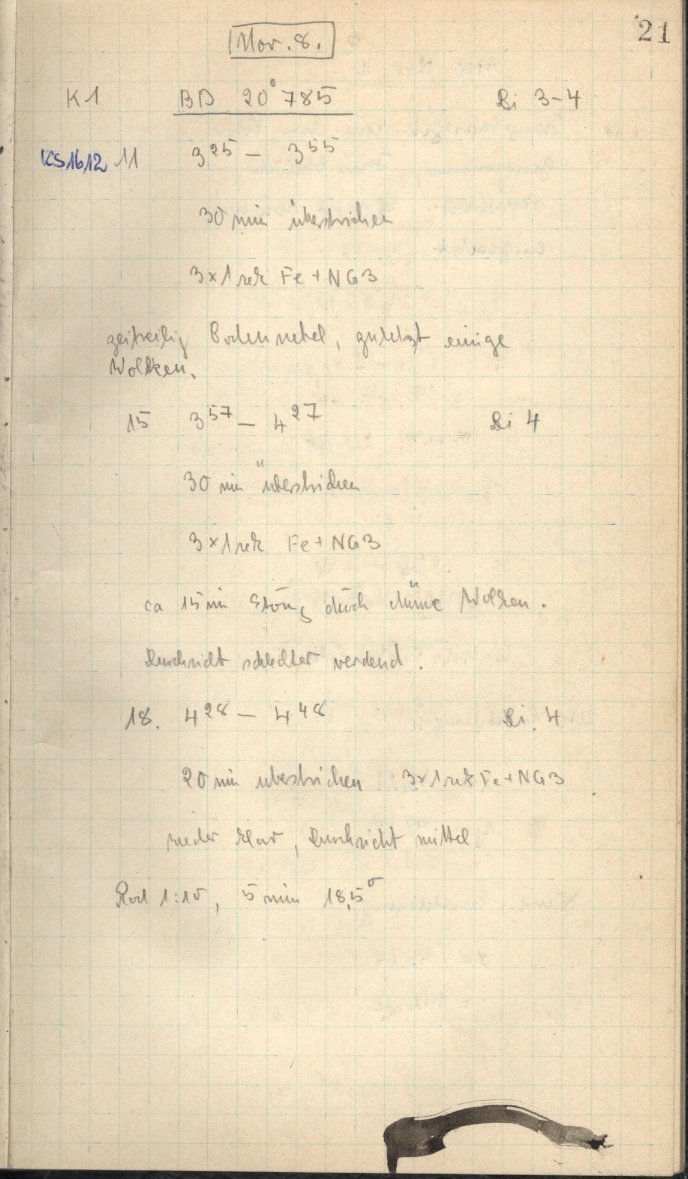 21
Nov. 8.
K1 BD 20° 785 Bi 3-4
KS1612 11 3²⁵ - 3⁵⁵
30 min überstrichen
3x1 sek Fe+NG3
zeitweilig Bodennebel, zuletzt einige
Wolken.
15 3⁵⁷ - 4²⁷ Bi 4
30 min überstrichen
3x1 sek Fe+NG3
ca 15 min Störg durch dünne Wolken.
Durchsicht schlechter werdend.
18. 4²⁸ - 4⁴⁸ Bi. 4
20 min überstrichen 3x1 sek Fe+NG3
wieder klar, Durchsicht mittel
Rod 1:10, 5 min 18,5°